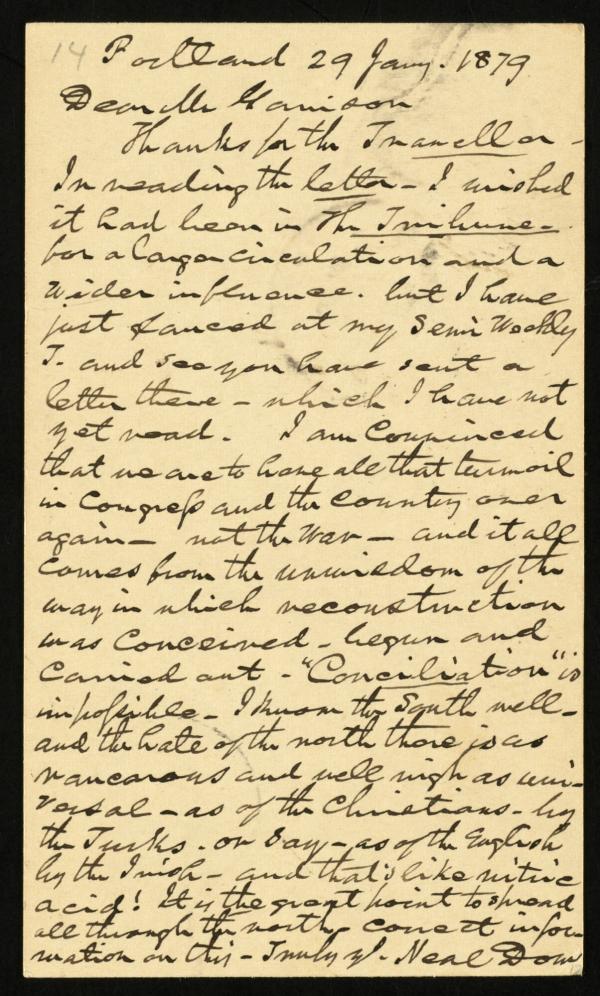 14 Portland 29 Jany. 1879
Dear Mr Garrison
Thanks for the Traveller -
In reading the letter - I wished
it had been in The Tribune -
for a larger circulation and a
wider influence. but I have
just glanced at my Semi Weekly
T. and see you have sent a
letter there - which I have not
yet read. I am Convinced
that we are to have all that turmoil
in Congress and the Country over
again - not the War - and it all
comes from the unwisdom of the
way in which reconstruction
was Conceived - begun and
Carried out - "Conciliation" is
impossible - I know the South well -
and the hate of the north there is as
rancorous and well nigh as uni-
versal - as of the Christians - by
the Turks - or say - as of the English
by the Irish - and that's like nitric
acid! It is the great point to spread
all through the north, correct infor-
mation on this - Truly yr. Neal Dow